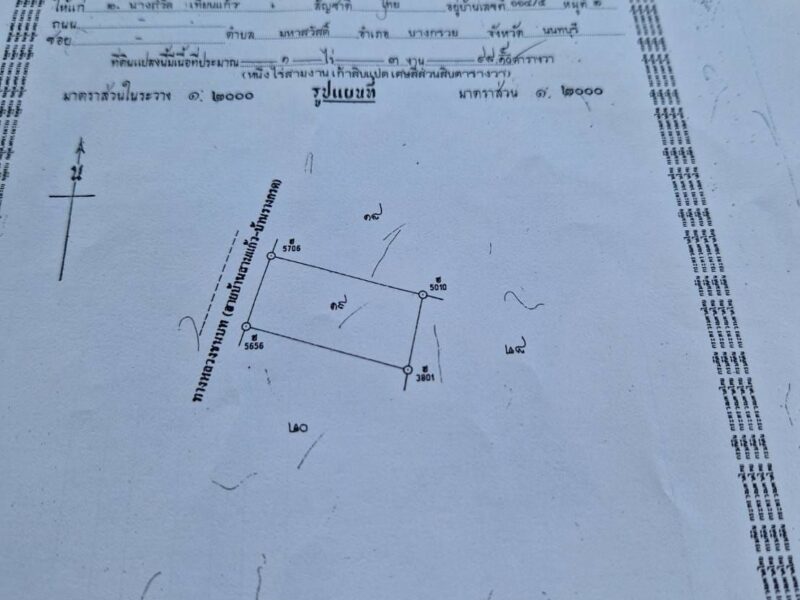 ให้แก่ ๒. นางศรีวัล เทียนแก้ว สัญชาติ ไทย อยู่บ้านเลขที่ หมู่ที่ ๒
ถนน
ซอย - ตำบล มหาสวัสดิ์ อำเภอ บางกรวย จังหวัด นนทบุรี
ที่ดินแปลงนี้มีเนื้อที่ประมาณ ๑ ไร่ ๓ งาน ตารางวา
(หนึ่งไร่สามงานเก้าสิบแปดเศษสี่ส่วนสิบตารางวา)
มาตราส่วนในระวาง ๑: ๒๐๐๐ รูปแผนที่ มาตราส่วน ๑: ๒๐๐๐
น
๑๘
ฮ
5706
ฮ
5010
๑๙
ทางหลวงชนบท (สายบ้านสามแก้ว-บ้านรางกรด)
5656
ฮ
ฮ
3801
๒๙
๒๐